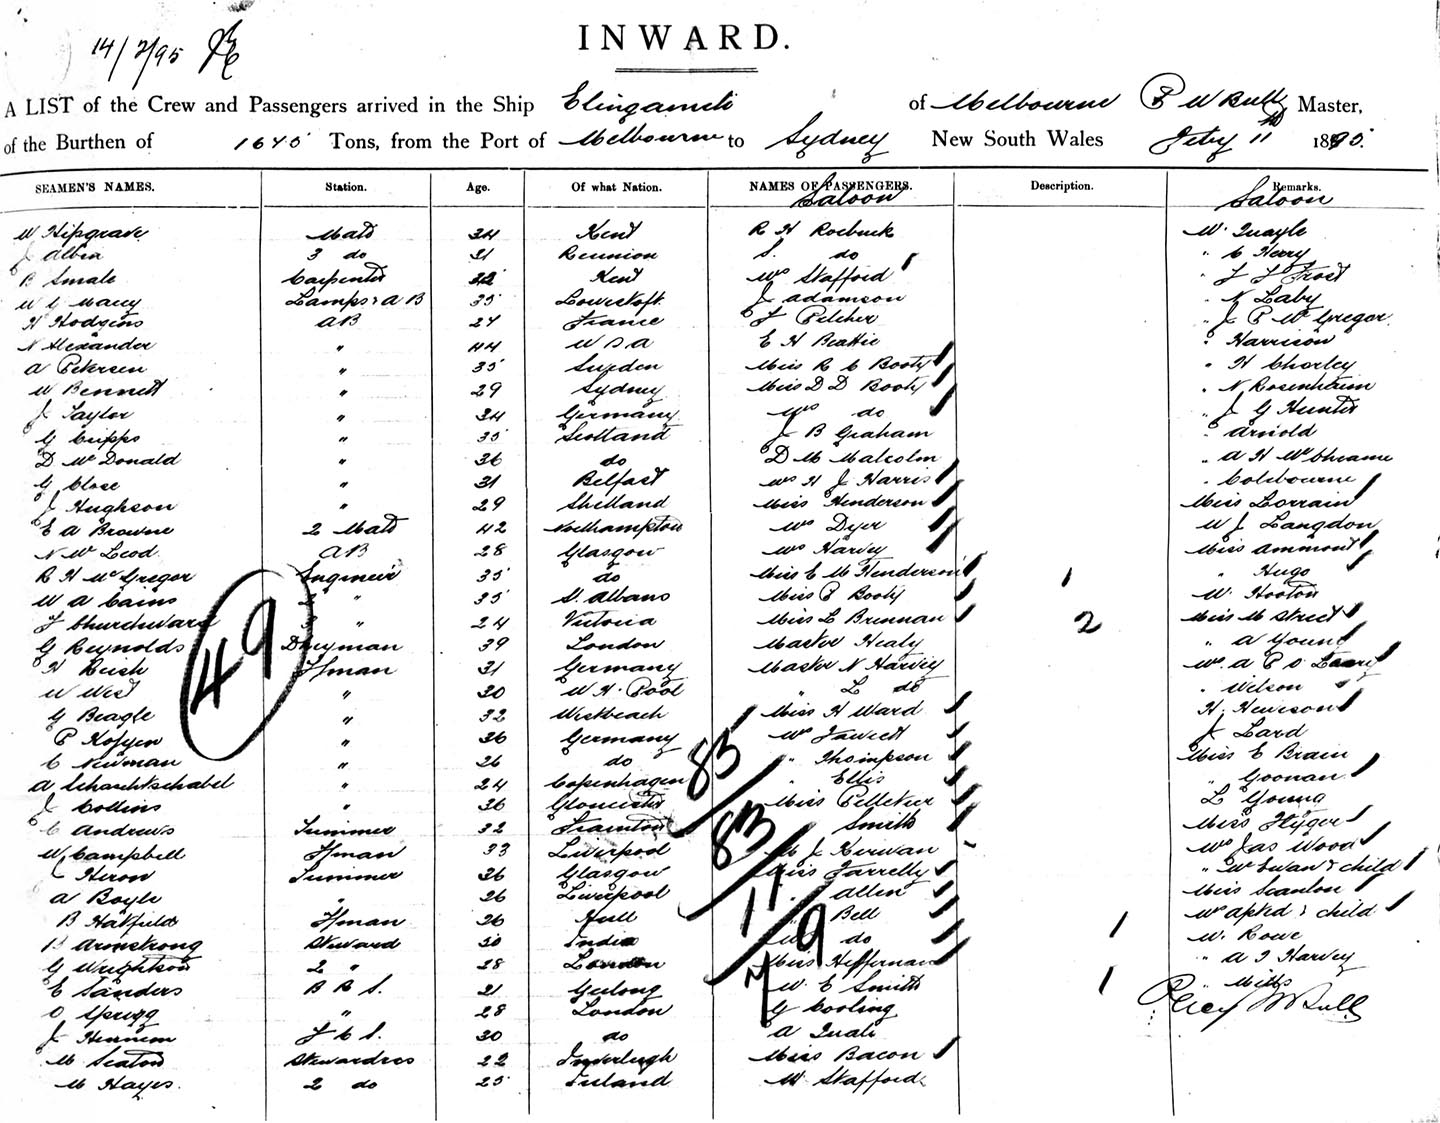 14/2/95
INWARD.
A LIST of the Crew and Passengers arrived in the Ship Elingamiti of Melbourne P W Bull Master,
of the Burthen of 1675 Tons, from the Port of Melbourne to Sydney New South Wales Feby 11th 1895.
SEAMEN'S NAMES. Station. Age. Of what Nation. NAMES OF PASSENGERS. Description. Remarks.
Saloon Saloon
W Hipgrave Mate 34 Kent R H Roebuck W. Quayle
J Albra 3 do 31 Reunion S. do " C Kerry
B Smale Carpenter Kent Mrs Stafford " J J Frost
W G Macey Lamps & AB 35 Lowestoft J Adamson " N Laby
H Hodgins AB 27 France J Pelcher " J P McGregor
N Alexander " 44 USA E H Beattie " Harrison
A Petersen " 35 Sweden Miss R C Booty " H Chorley
W Bennett " 29 Sydney Miss D D Booty " N Rosenhaim
J Taylor " 34 Germany Mrs do " J G Hunter
G Cripps " 35 Scotland J B Graham " Arnold
D McDonald " 36 do D M Malcolm " A H McSheame
G Close " 31 Belfast Mrs H J Harris " Colebourne
J Hughson " 29 Shetland Miss Henderson Miss Lorrain
E A Browne 2 Mate 42 Northampton Mrs Dyer W J Langdon
N McLeod AB 28 Glasgow Mrs Harvey Miss Ammont
R H McGregor Engineer 35 do Miss E M Henderson 1 " Hugo
W A Cains " 35 St. Albans Miss P Booty W. Hooton
J Churchward " 24 Victoria Miss L Brennan 2 Miss M Street
G Reynolds Dkeyman 39 London Master Healy " A Young
H Rush Ffman 31 Germany Master N Harvey Mrs A P O'Leary
W West " 30 W H. Pool " L do " Wilson
G Beagle " 32 Wisbeach Miss H Ward H. Hewison
P Kofyen " 36 Germany Mrs Fawcett J Lard
C Newman " 26 do " Thompson Miss E Brain
A Schachtschabel " 24 Copenhagen " Ellis " Goonan
J Collins " 36 Gloucester Miss Pelletier L Young
C Andrews Trimmer 32 Frampton Smith Miss Flyger
W Campbell Ffman 33 Liverpool J Kerwan Mrs Jas Wood
Heron Trimmer 26 Glasgow Miss Farrelly " McEwan & child
A Boyle " 26 Liverpool " Allen Miss Scanlon
B Hatfield Ffman 26 Hull " Bell 1 Mrs Apted & child
Armstrong Steward 30 India do W. Rowe
G Wrightson 2 " 28 London Miss Heffernan " A J Harvey
E Sanders B R S. 21 Geelong W. E Smith 1 " Mitts
O Grigg " 28 London G Cooling Percy W Bull
J Hennem F C S. 30 do A Quaite
M Seaton Stewardess 22 Miss Bacon
M Hayes. 2 do 25 Ireland W. Stafford
49
83
83
17
79